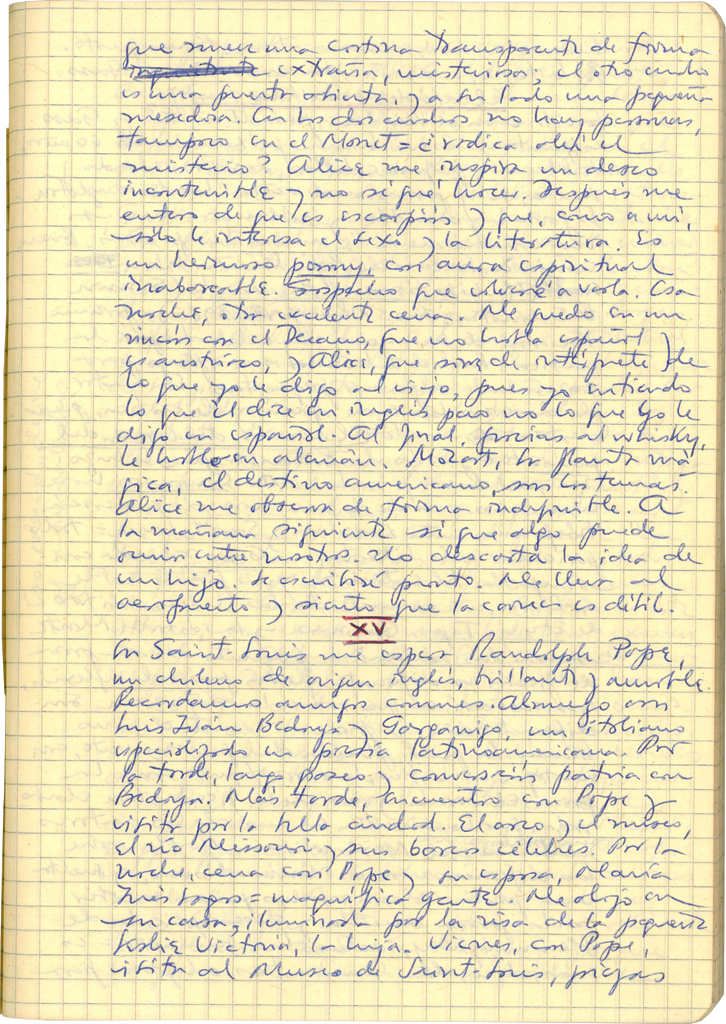 que mece una cortina transparente de forma
inquietante extraña, misteriosa; el otro cuadro
es una puerta abierta, y a su lado una pequeña
mecedora. En los dos cuadros no hay personas,
tampoco en el Monet = ¿radica ahí el
misterio? Alice me inspira un deseo
incontenible y no sé qué hacer. Después me
entero de que es escorpión y que, como a mí,
sólo le interesa el sexo y la literatura. Es
un hermoso ponny, con aura espiritual
inabarcable. Sospecho que volveré a verla. Esa
noche, otra excelente cena. Me quedo en un
rincón con el Decano, que no habla español y
es austríaco, y Alice, que sirve de intérprete de
lo que yo le digo al viejo, pues yo entiendo
lo que él dice en inglés pero no lo que yo le
digo en español. Al final, gracias al whisky,
le hablo en alemán. Mozart, la flauta má-
gica, el destino americano, son los temas.
Alice me observa de forma indefinible. A
la mañana siguiente sé que algo puede
ocurrir entre nosotros. No descarta la idea de
un hijo. Le escribiré pronto. Me lleva al
aeropuerto y siento que la carne es débil.
XV
En Saint-Louis me espera Randolph Pope,
un chileno de origen inglés, brillante y amable.
Recordamos amigos comunes. Almuerzo con
Luis Iván Bedoya y Garganigo, un italiano
especializado en poesía latinoamericana. Por
la tarde, largo paseo y conversación patria con
Bedoya. Más tarde, encuentro con Pope y
visita por la bella ciudad. El arco y el museo,
el río Missouri y sus barcos célebres. Por la
noche, cena con Pope y su esposa, María
Inés Lagos = magnífica gente. Me alojo en
su casa, iluminada por la risa de la pequeña
Leslie Victoria, la hija. Viernes, con Pope,
visita al Museo de Saint-Louis, piezas